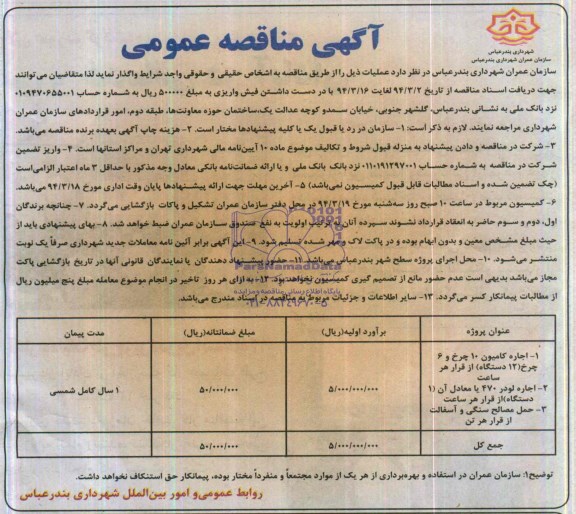 شهرداری بندرعباس
سازمان عمران شهرداری بندرعباس
آگهی مناقصه عمومی
سازمان عمران شهرداری بندرعباس در نظر دارد عملیات ذیل را از طریق مناقصه به اشخاص حقیقی و حقوقی واجد شرایط واگذار نماید لذا متقاضیان می‌توانند
جهت دریافت اسناد مناقصه از تاریخ ۹۴/۳/۲ لغایت ۹۴/۳/۱۶ با در دست داشتن فیش واریزی به مبلغ ۵۰۰۰۰۰ ریال به شماره حساب ۰۱۰۹۴۷۰۶۵۵۰۰۱
نزد بانک ملی به نشانی بندرعباس، گلشهر جنوبی، خیابان سمدو کوچه عدالت یک، ساختمان حوزه معاونت‌ها، طبقه دوم، امور قراردادهای سازمان عمران
شهرداری مراجعه نمایند. لازم به ذکر است: ۱- سازمان در رد یا قبول یک یا کلیه پیشنهادها مختار است. ۲- هزینه چاپ آگهی بعهده برنده مناقصه می‌باشد.
۳- شرکت در مناقصه و دادن پیشنهاد به منزله قبول شروط و تکالیف موضوع ماده ۱۰ آیین‌نامه مالی شهرداری تهران و مراکز استانها است. ۴- واریز تضمین
شرکت در مناقصه به شماره حساب ۰۱۱۰۱۹۱۳۹۷۰۰۱ نزد بانک بانک ملی و یا ارائه ضمانت‌نامه بانکی معادل وجه مذکور با حداقل ۳ ماه اعتبار الزامی‌است
(چک تضمین شده و اسناد مطالبات قابل قبول کمیسیون نمی‌باشد) ۵- آخرین مهلت جهت ارائه پیشنهادها پایان وقت اداری مورخ ۹۴/۳/۱۸ می‌باشد.
۶- کمیسیون مربوط در ساعت ۱۰ صبح روز سه‌شنبه مورخ ۹۴/۳/۱۹ در محل دفتر سازمان عمران تشکیل و پاکات بازگشایی می‌گردد. ۷- چنانچه برندگان
اول، دوم و سوم حاضر به انعقاد قرارداد نشوند سپرده آنان به ترتیب اولویت به نفع صندوق سازمان عمران ضبط خواهد شد. ۸- بهای پیشنهادی باید از
حیث مبلغ مشخص معین و بدون ابهام بوده و در پاکت لاک و مهر شده تسلیم شود. ۹- این آگهی برابر آئین نامه معاملات جدید شهرداری صرفاً یک نوبت
منتشر می‌شود. ۱۰- محل اجرای پروژه سطح شهر بندرعباس می‌باشد. ۱۱- حضور پیشنهاد دهندگان یا نمایندگان قانونی آنها در تاریخ بازگشایی پاکت
مجاز می‌باشد بدیهی است عدم حضور مانع از تصمیم گیری کمیسیون نخواهد بود. ۱۲- به ازای هر روز تاخیر در انجام موضوع معامله مبلغ پنج میلیون ریال
از مطالبات پیمانکار کسر می‌گردد. ۱۳- سایر اطلاعات و جزئیات مربوط به مناقصه در اسناد مندرج می‌باشد.
ParsNamadData
پایگاه اطلاع رسانی مناقصه و مزایده
۰۲۱-۸۸۳۴۹۶۷۰-۵
عنوان پروژه برآورد اولیه(ریال) مبلغ ضمانتنامه(ریال) مدت پیمان
۱- اجاره کامیون ۱۰ چرخ و ۶
چرخ(۱۲ دستگاه) از قرار هر
ساعت
۲- اجاره لودر ۴۷۰ یا معادل آن (۱
دستگاه)از قرار هر ساعت
۳- حمل مصالح سنگی و آسفالت
از قرار هر تن
۵/۰۰۰/۰۰۰/۰۰۰ ۵۰/۰۰۰/۰۰۰ ۱ سال کامل شمسی
جمع کل ۵/۰۰۰/۰۰۰/۰۰۰ ۵۰/۰۰۰/۰۰۰
توضیح۱: سازمان عمران در استفاده و بهره‌برداری از هر یک از موارد مجتمعاً و منفرداً مختار بوده، پیمانکار حق استنکاف نخواهد داشت.
روابط عمومی‌و امور بین‌الملل شهرداری بندرعباس